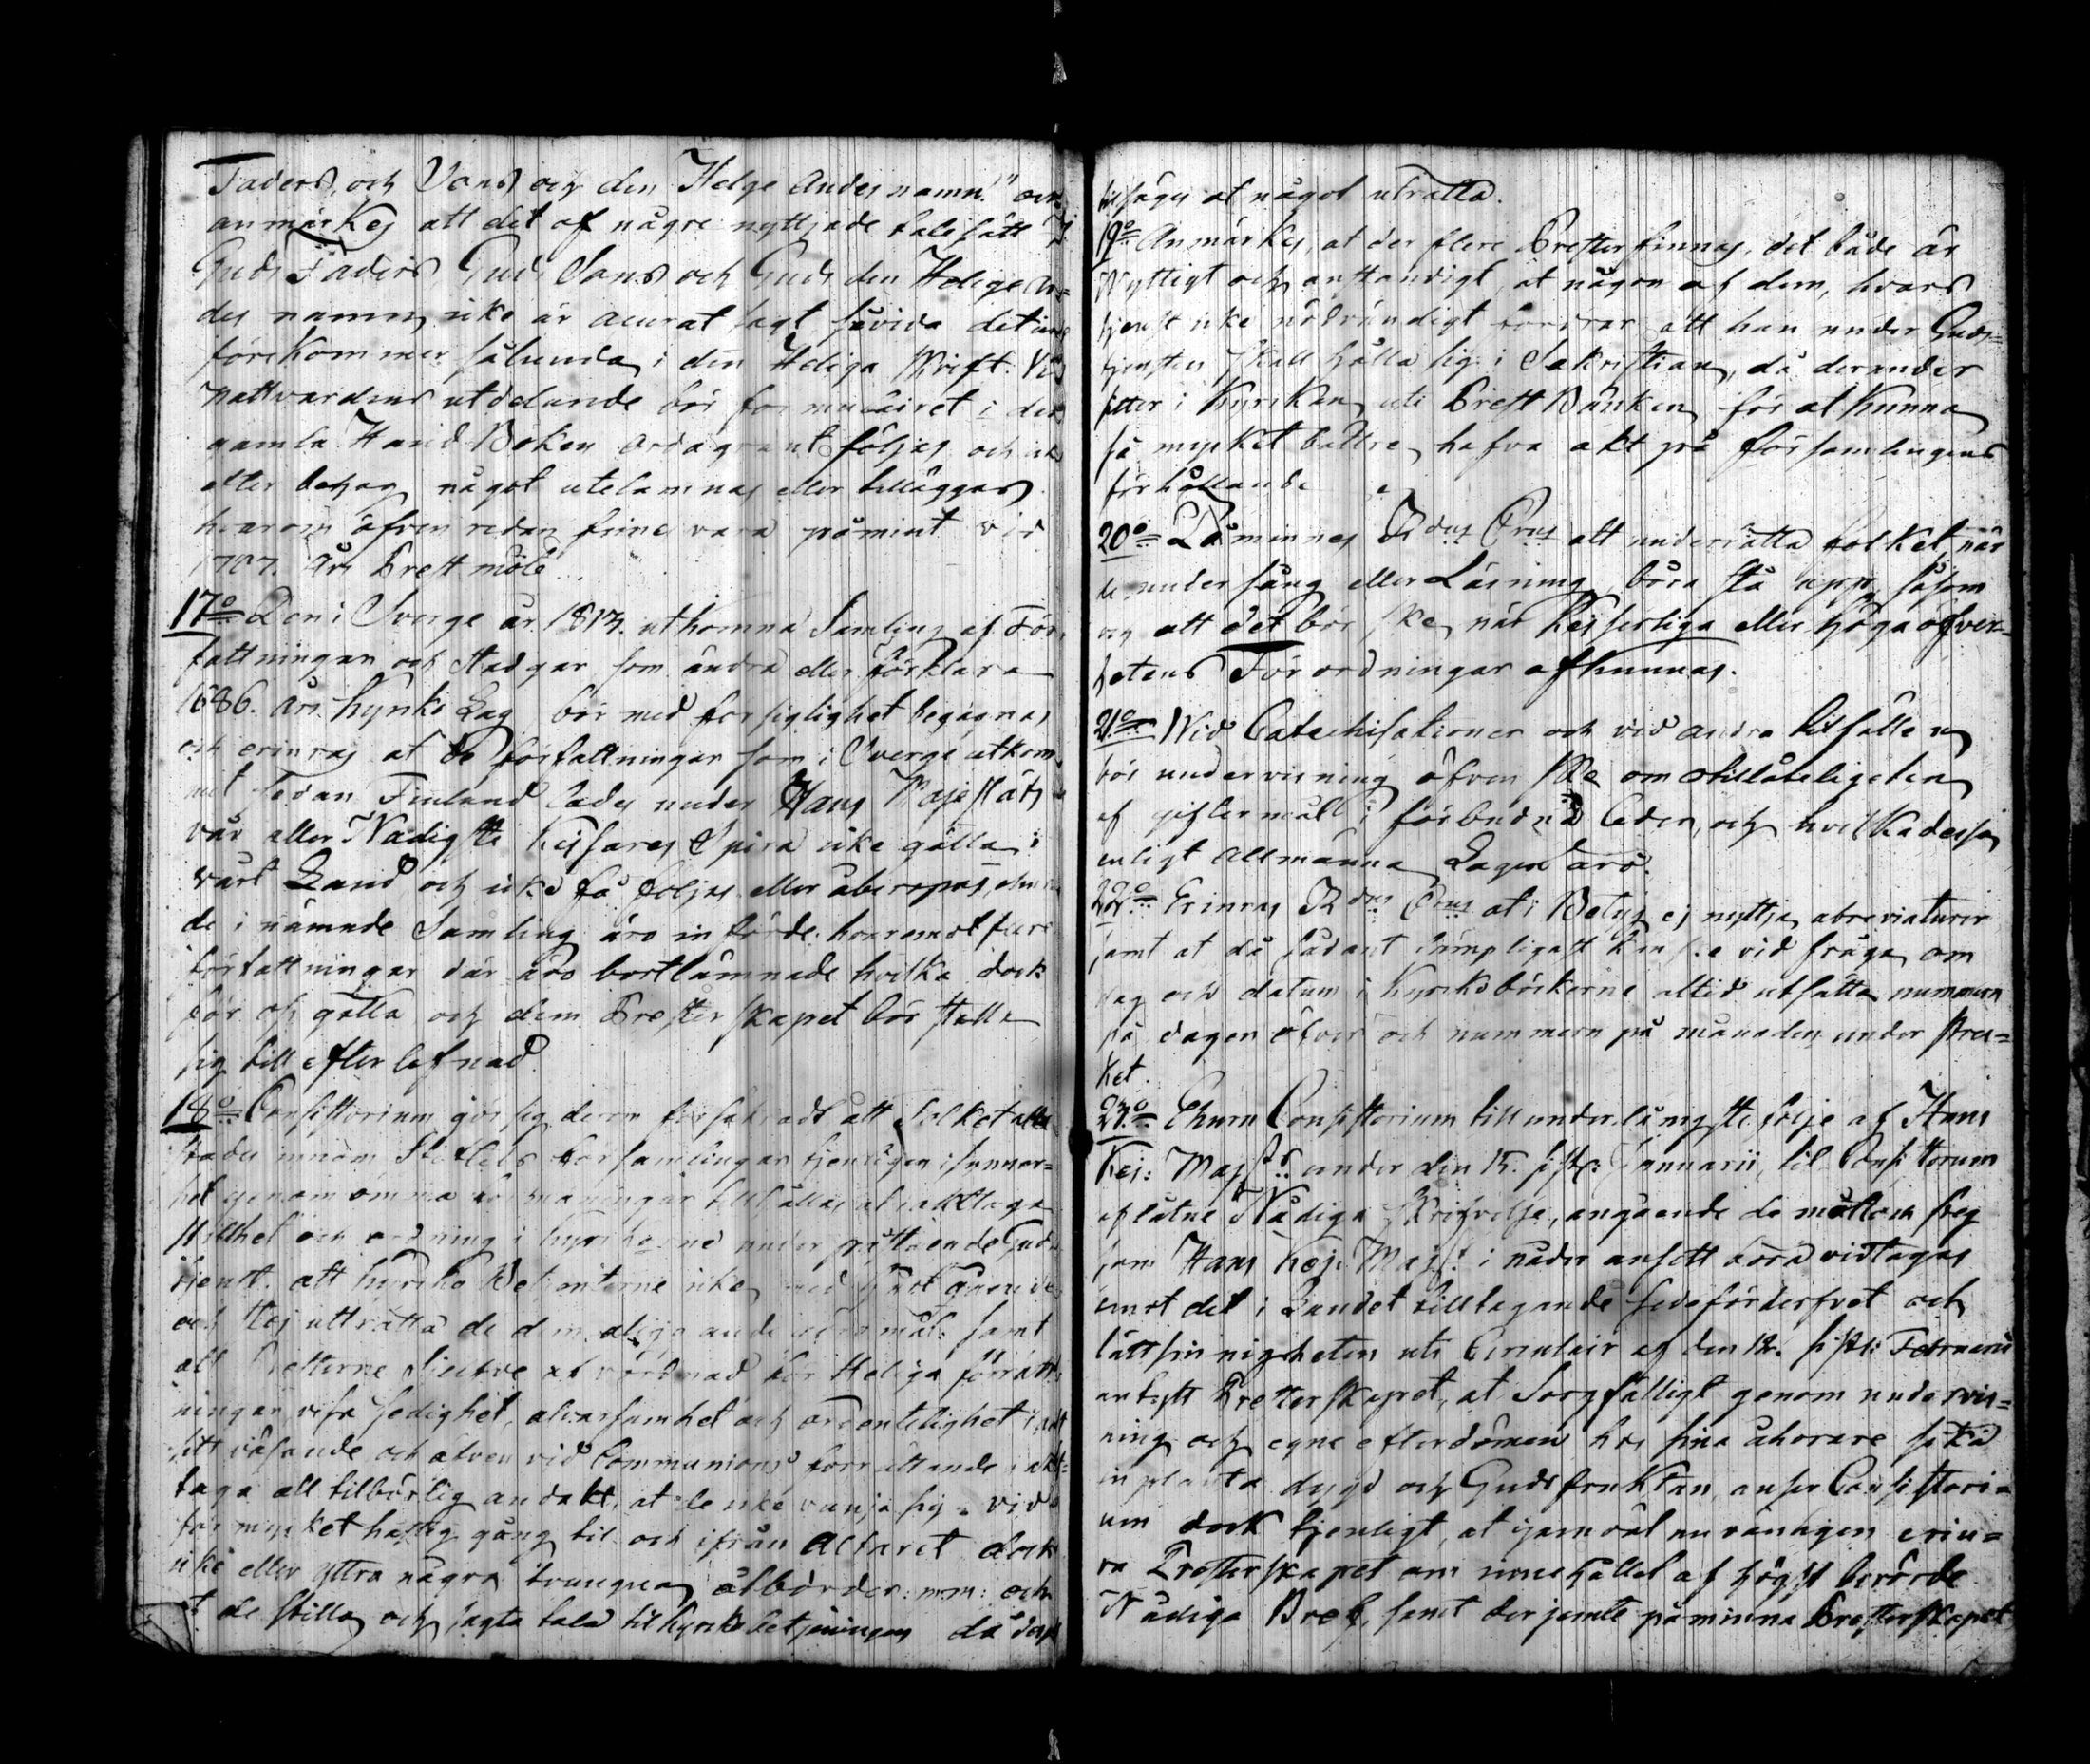 Faders, och Sons och den Helge Andes namn." och
anmärkes att det af någre nyttjade talesätt J
Guds Faders, Guds Sons och Guds den Helige An=
des namn, icke är acurat sagt, såvida det icke
förekommer sålunda i den Heliga Skrift. Vid
Nattvardens utdelande bör formulairet i den
gamla Hand Boken ordagrant följas och ick
efter behag något utelämnas eller tillägges
hvarom äfven redan finnes vara påmint vid
1707. års Prestmöte
17o Den i Sverge år 1813. utkomna Samling af För=
fattningar och Stadgar som ändra eller förklara
1686. års Kyrko Lag bör med försiglighet begagnas
och erinras at de författningar som i Sverge utkom=
mit sedan Finland lades under Hans Majestäts
vår aller Nådigste Kejsares Spira icke gälla i
vårt Land och icke få följas eller åberopas, ehuru
de i nämnde Samling äro införde. hvaremot flere
författningar där äro bortlämnade hvilka dock
för oss gälla och dem Presterskapet bör ställa
sig till efterlefnad.
18o Consistorium gör sig derom försäkradt att Folket allt
städes innom Stiftets församlingar tjenligen i synner=
het genom ömma förmaningar tillhållas at iakttaga
Stillhet och ordning i kyrkorne under påstående Guds
tjenst. att kyrko Betjenterne icke med gående
och stoj uträtta de dem åliggande samt
att Presterne Sielfve af vördnad för Heliga förrätt=
ningar, visa sedighet, alvarsamhet och ordentelighet i allt
sitt väsende och äfven vid Communions förrättande iakt=
taga all tilbörlig andakt, at de icke vänja sig vid
för mycket hastig gång til och ifrån Altaret dock
icke eller yttra några tvungna åtbörder. mm: och
at de stilla och sagta tala til kyrkobetjeningen då dess
tilsäges at något uträtta.
19o Anmärkes, at der flere Prester finnas, det både är
Nyttigt och anständigt, at någon af dem, hvars
tjenst icke nödvändigt fordrar att han under Guds=
tjensten skall hålla sig i Sakristian, då derunder
sitter i Kyrkan uti Prest Bänken för at kunna
så mycket bättre hafva akt på församlingens
förhållande
20o Påminnes Rdus Crus att underrätta folket, när
de under sång eller Läsning böra stå upp, såsom
och att det bör ske, när Kejserliga eller höga öfver=
hetens Förordningar afkunnas.
21o Wid Catechisationer och vid andra tilfällen
bör undervisning äfven ske om otillåteligeten
af giftermåll i förbudna Leder, och hvilka dessa
enligt Allmänna Lagen äro.
22o Erinras Rdus Crus at i Betyg ej nyttja abreviaturer
samt at då sådant lämpligast kan ske vid fråga om
dag och datum i Kyrkoböckerne altid utsätta nummern
på dagen öfver och nummern på månaden under strec=
ket.
23o Ehuru Consistorium till underdånigste följe af Hans
Kej: Majsts under den 15. sistl: Januarii, til Consistorium
aflåtne Nådiga Skrifvelse, angående de mått och steg
som Hans Kej: Majst i nåder ansett böra vidtagas
emot det i Landet tilltagande sedeförderfvet och
lättsinnigheten uti Circulair af den 12. sistl: Februarii
anbefalt Presterskapet, at Sorgfälligt genom undervis=
ning och egne efterdömen hos sina åhörare söka
inplanta dygd och Gudsfruktan, anser Consistori=
um dock tjenligt, at igenom nu varande erin=
ra Presterskapet om innehållet af högst berörde
Nådiga Bref, samt derjemte påminna Presterskapet